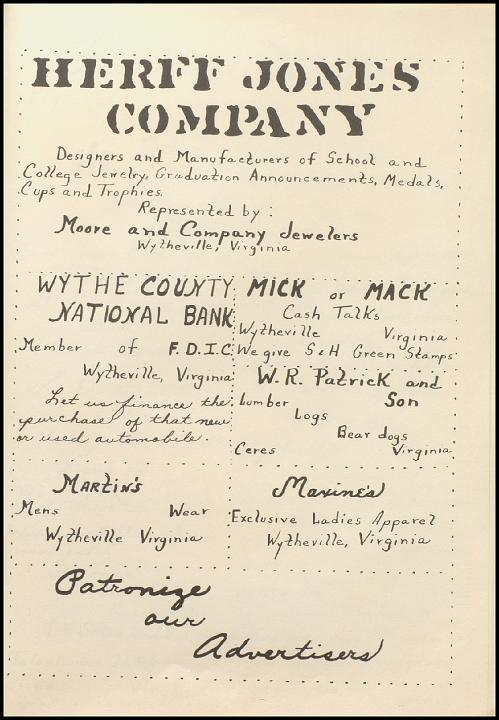 HERFF JONES
COMPANY
Designers and Manufacturers of School and
College Jewelry, Graduation Announcements, Medals,
Cups and Trophies.
Represented by :
Moore and Company Jewelers
Wytheville, Virginia
WYTHE COUNTY
NATIONAL BANK
Member of F.D.I.C.
Wytheville, Virginia
Let us finance the
purchase of that new
or used automobile.
MICK or MACK
Cash Talks
Wytheville Virginia
We give S&H Green Stamps
W.R. Patrick and
Son
Lumber
Logs
Bear dogs
Ceres Virginia
Martin's
Mens Wear
Wytheville Virginia
Maxine's
Exclusive Ladies Apparel
Wytheville, Virginia
Patronize
our
Advertisers